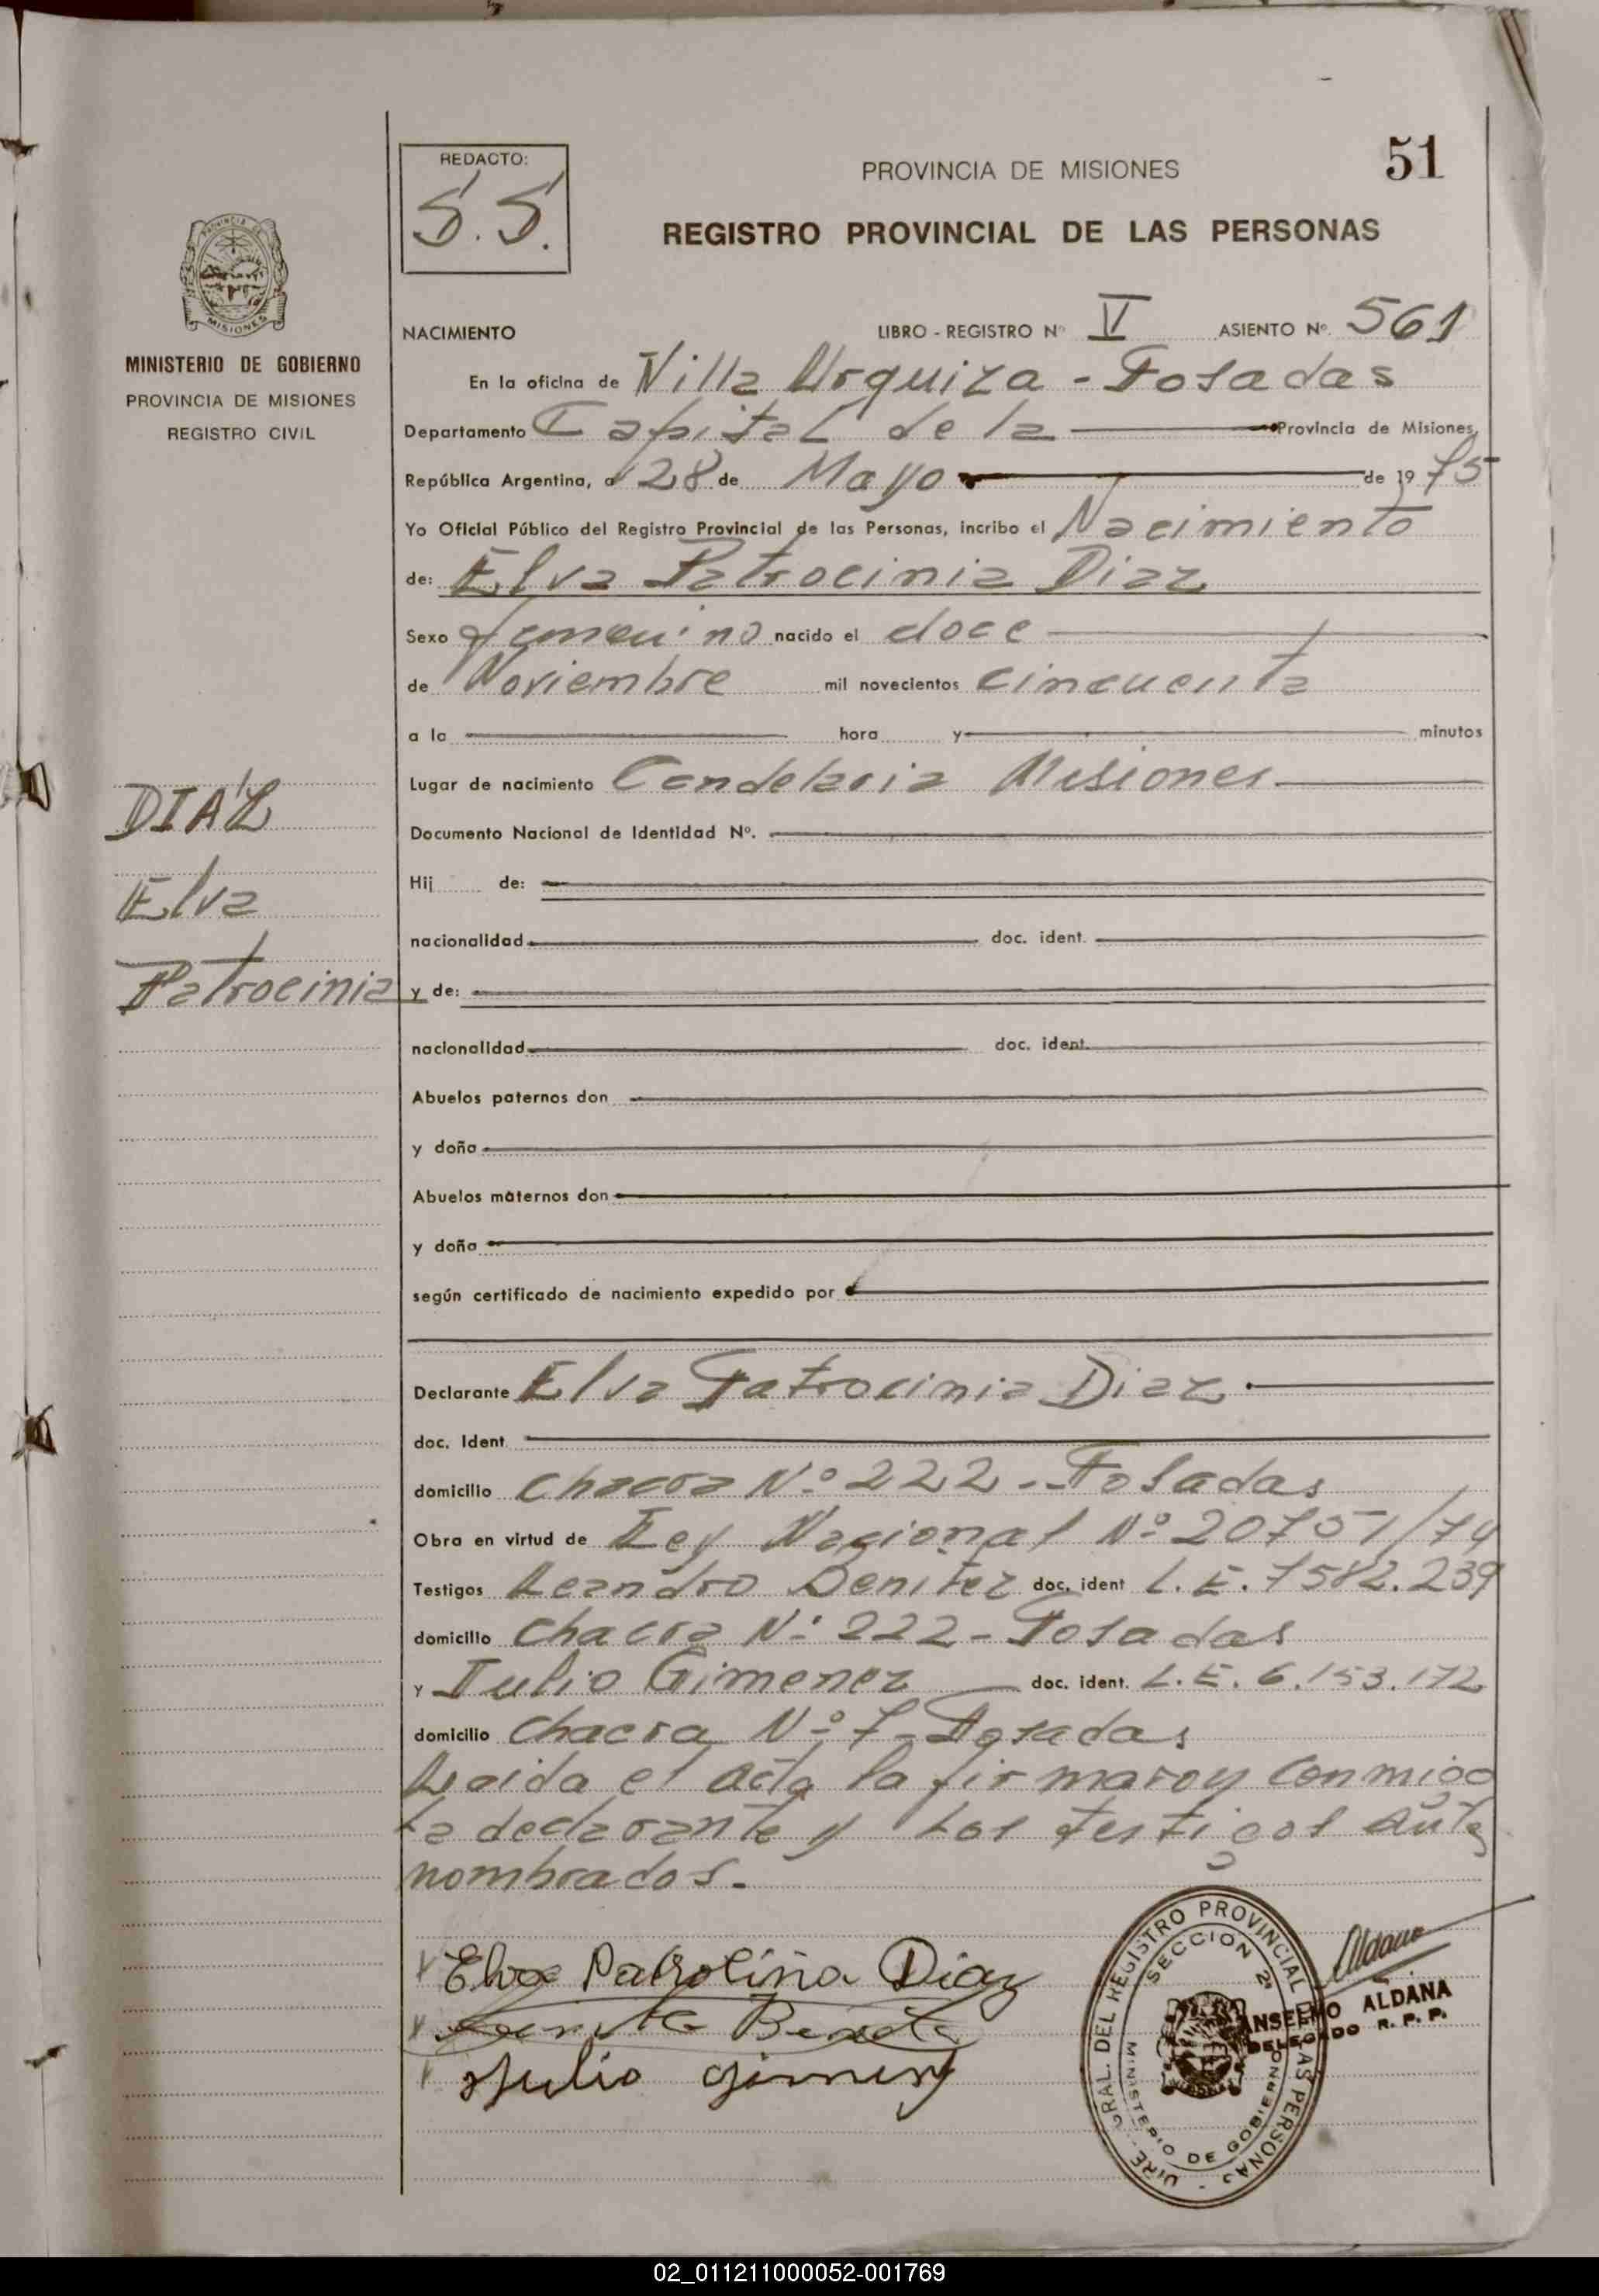 REDACTO:
S.S.
PROVINCIA DE MISIONES
51
REGISTRO PROVINCIAL DE LAS PERSONAS
MISIONES
MINISTERIO DE GOBIERNO
PROVINCIA DE MISIONES
REGISTRO CIVIL
NACIMIENTO LIBRO - REGISTRO Nº V ASIENTO Nº. 561
En la oficina de Villa Urquiza - Posadas
Departamento Capital de la Provincia de Misiones,
República Argentina, a 28 de Mayo de 1975
Yo Oficial Público del Registro Provincial de las Personas, incribo el Nacimiento
de: Elva Patrocinia Diaz
Sexo femenino nacido el doce
de Noviembre mil novecientos cincuenta
a la hora y minutos
Lugar de nacimiento Candelaria Misiones
Documento Nacional de Identidad Nº.
Hij de:
nacionalidad doc. ident.
y de:
nacionalidad doc. ident.
Abuelos paternos don
y doña
Abuelos maternos don
y doña
según certificado de nacimiento expedido por
DIAZ
Elva
Patrocinia
Declarante Elva Patrocinia Diaz
doc. Ident.
domicilio chacra Nº 222 - Posadas
Obra en virtud de Ley Nacional Nº 20751/74
Testigos Leandro Benitez doc. ident L.E. 7582.239
domicilio chacra Nº 222 - Posadas
y Julio Gimenez doc. ident. L.E. 6.153.172
domicilio chacra Nº 7 - Posadas
Leida el acta la firmaroy conmigo
La declarante y Los testigos ante
nombrados.-
Elva Patrolina Diaz
Julio Gimenez
DIRE. GRAL. DEL REGISTRO PROVINCIAL DE LAS PERSONAS
SECCION 2ª
MINISTERIO DE GOBIERNO
MISIONES
Aldana
ANSELMO ALDANA
DELEGADO R. P. P.
02_011211000052-001769